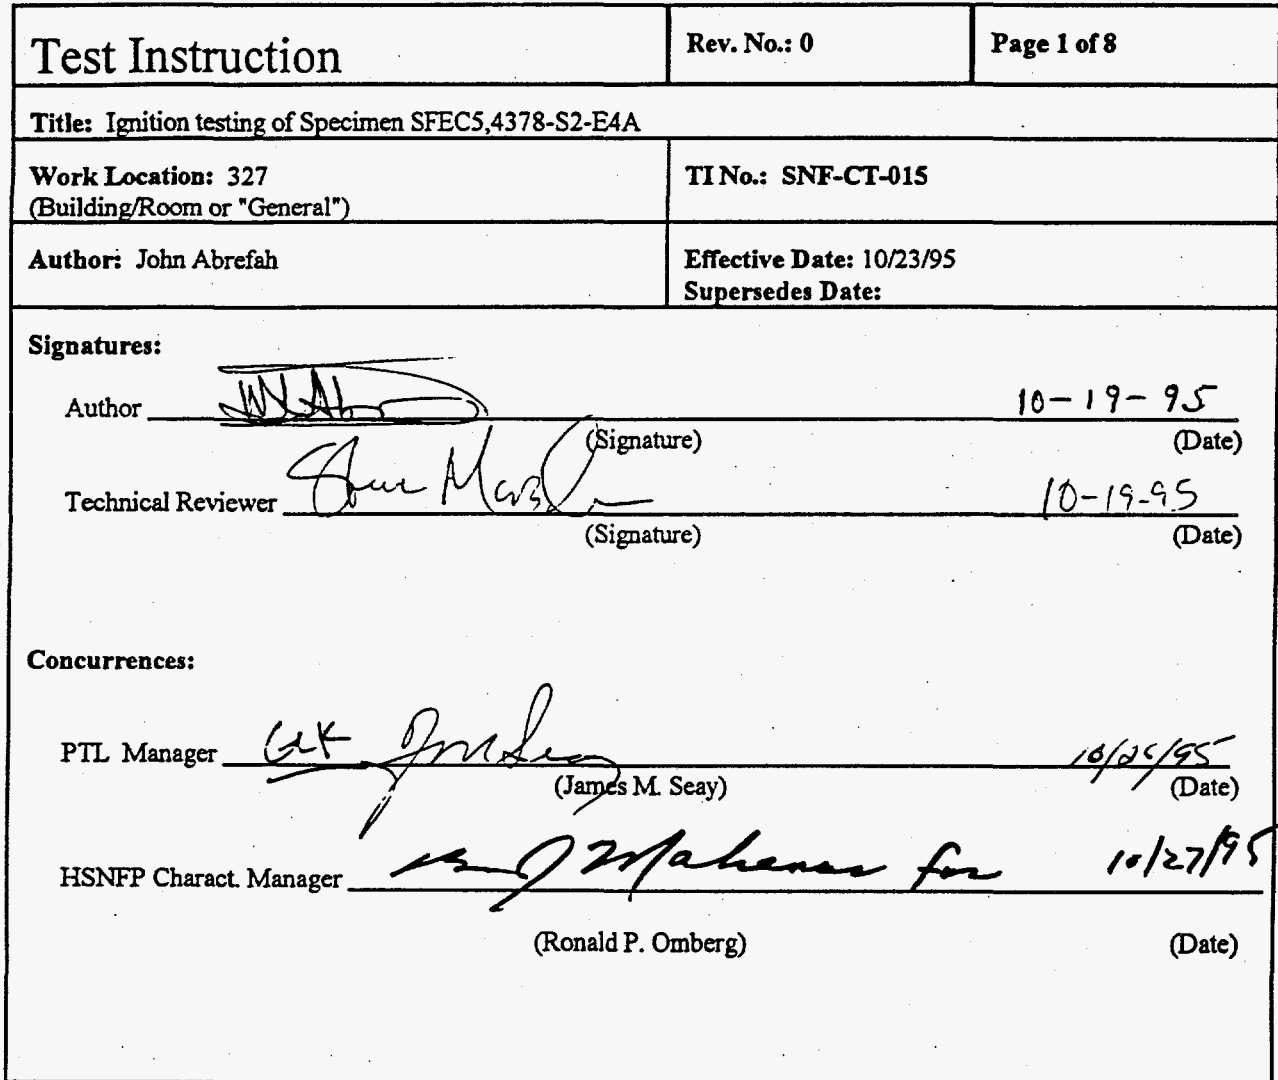 Test Instruction
Rev. No.: 0
Page 1 of 8
Title: Ignition testing of Specimen SFEC5,4378-S2-E4A
Work Location: 327
(Building/Room or "General")
TI No.: SNF-CT-015
Author: John Abrefah
Effective Date: 10/23/95
Supersedes Date:
Signatures:
Author 10-19-95
(Signature) (Date)
Technical Reviewer 10-19-95
(Signature) (Date)
Concurrences:
PTL Manager
(James M. Seay) (Date)
HSNFP Charact. Manager for 10/27/95
(Ronald P. Omberg) (Date)